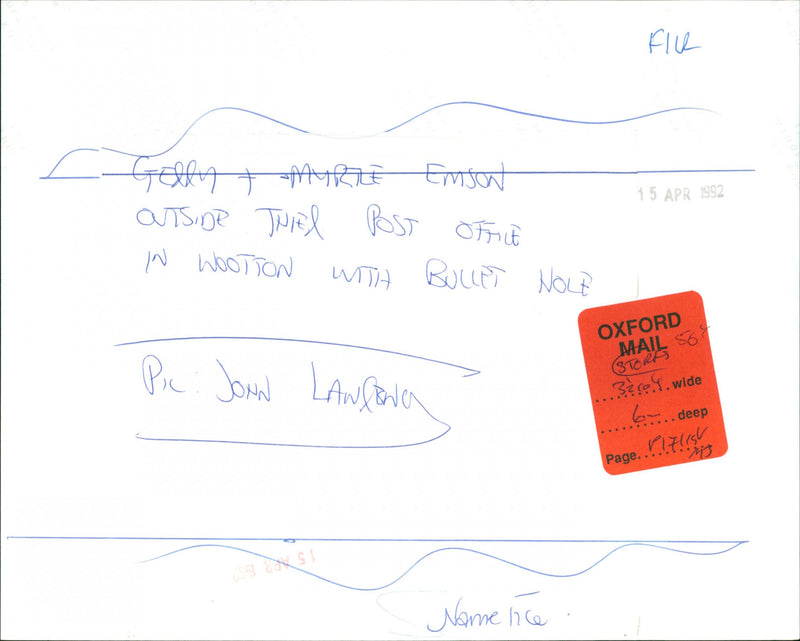 FILE
GERRY + MYRTLE EMSON
15 APR 1992
OUTSIDE THIER POST OFFICE
IN WOOTTON WITH BULLET HOLE
OXFORD
MAIL
STORAS 56%
wide
Pic: JOHN LAWRENCE
6 deep
Page
15 APR 1992
Name tie